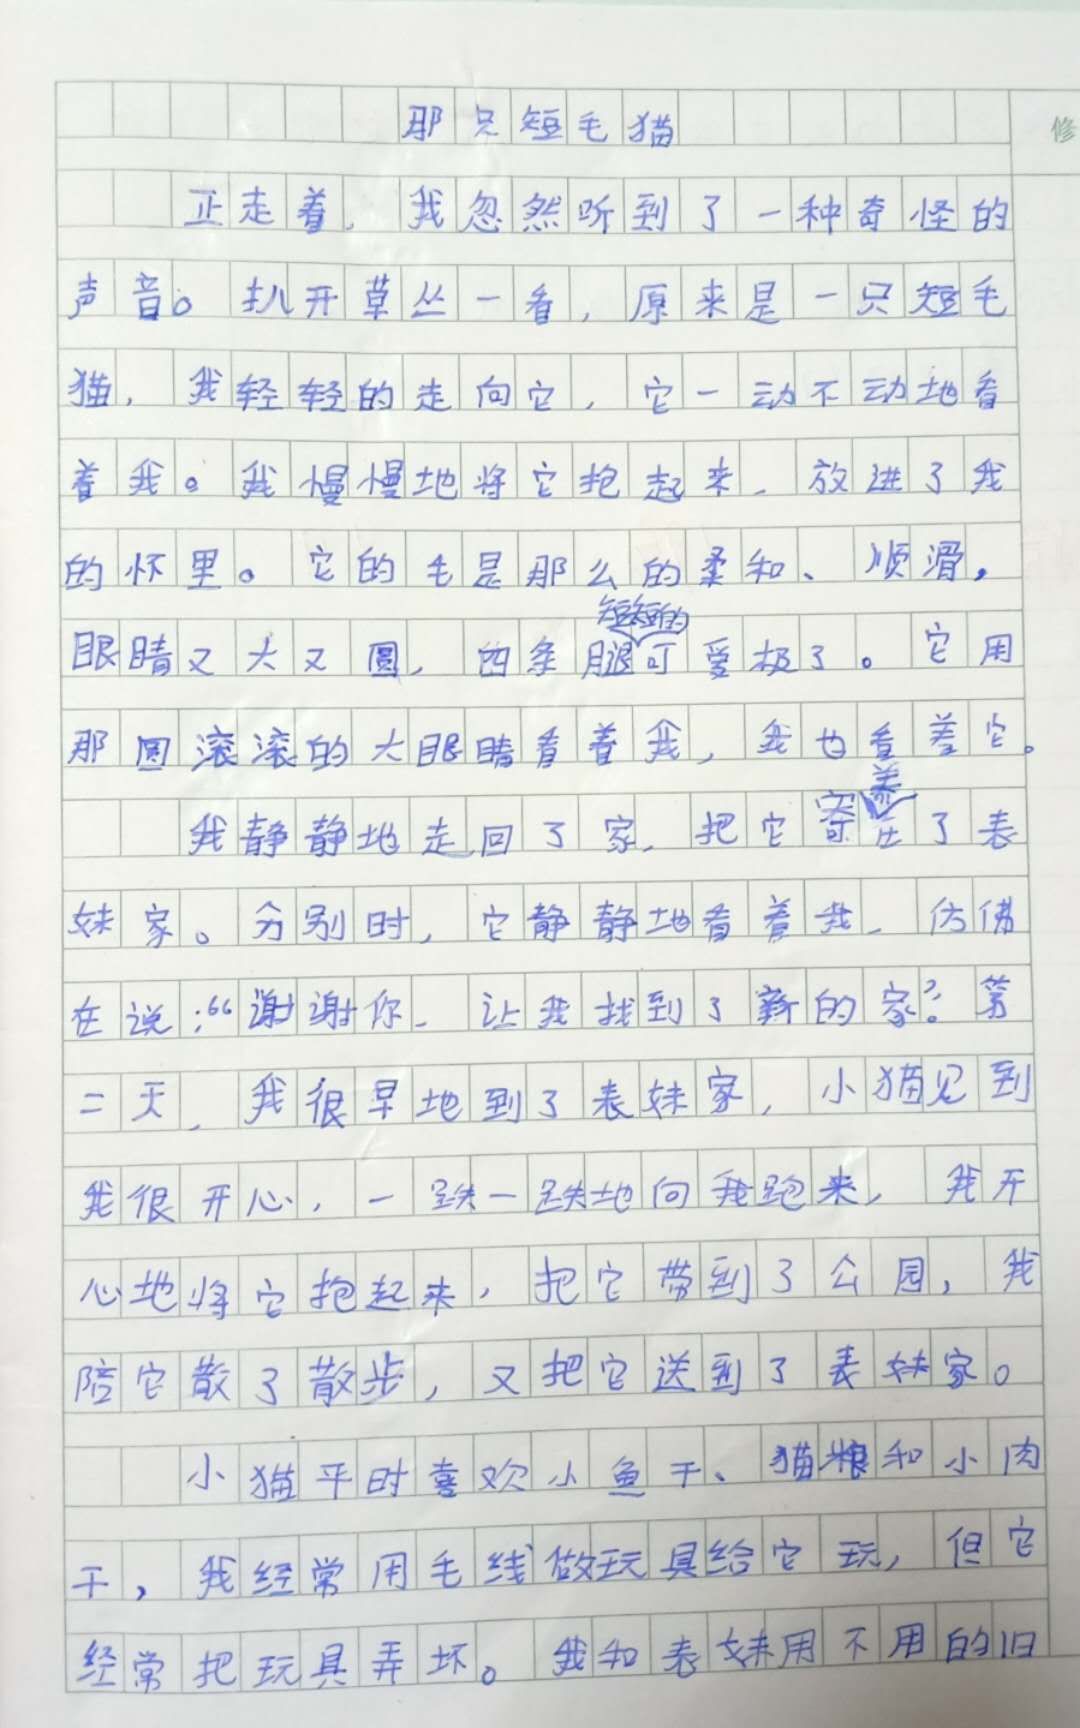 那只短毛猫
修
正走着，我忽然听到了一种奇怪的
声音。扒开草丛一看，原来是一只短毛
猫，我轻轻的走向它，它一动不动地看
着我。我慢慢地将它抱起来，放进了我
的怀里。它的毛是那么的柔和、顺滑，
眼睛又大又圆，四条腿短短的可爱极了。它用
那圆滚滚的大眼睛看着我，我也看着它。
我静静地走回了家，把它寄养在了表
妹家。分别时，它静静地看着我，仿佛
在说：“谢谢你，让我找到了新的家？第
二天，我很早地到了表妹家，小猫见到
我很开心，一跌一跌地向我跑来，我开
心地将它抱起来，把它带到了公园，我
陪它散了散步，又把它送到了表妹家。
小猫平时喜欢小鱼干、猫粮和小肉
干，我经常用毛线做玩具给它玩，但它
经常把玩具弄坏。我和表妹用不用的旧